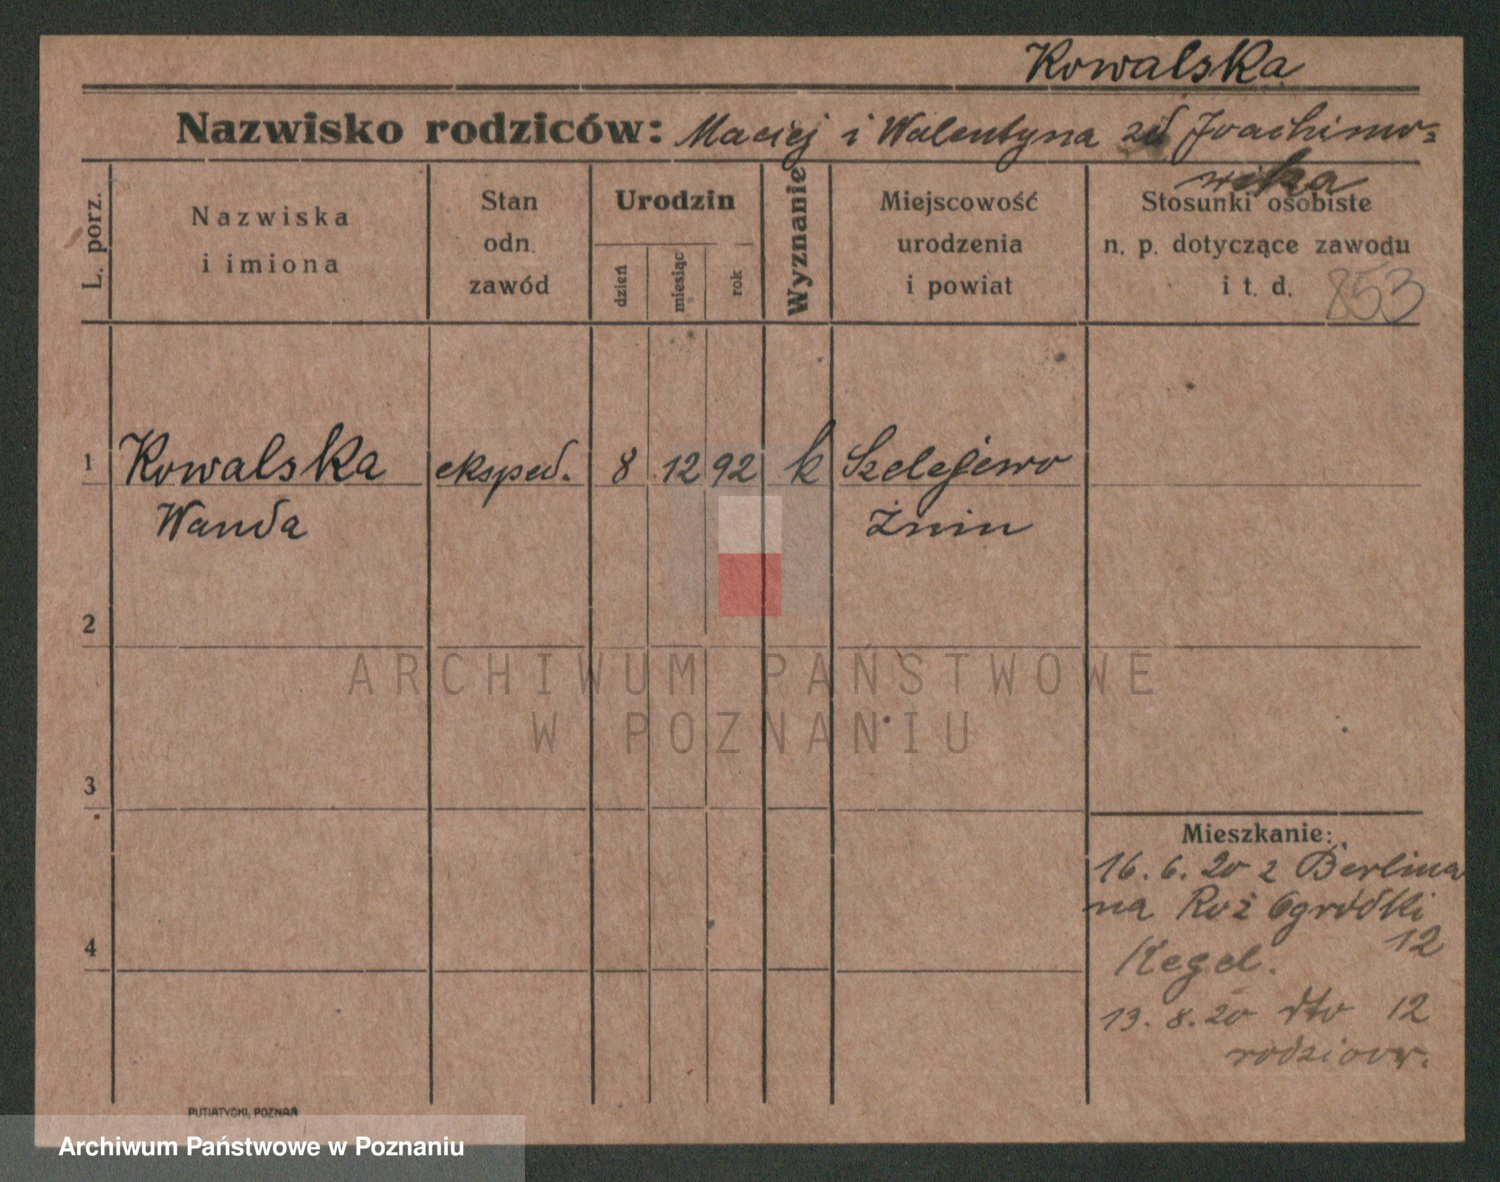 Kowalska
Nazwisko rodziców: Maciej i Walentyna zd Joachimo=
wska
L. porz.
Nazwiska
i imiona
Stan
odn.
zawód
Urodzin
dzień
miesiąc
rok
Wyznanie
Miejscowość
urodzenia
i powiat
Stosunki osobiste
n. p. dotyczące zawodu
i t. d.
853
1 Kowalska eksped. 8 12 92 k Szelejewo
Wanda Żnin
2
3
4
Mieszkanie:
16. 6. 20 z Berlina
na Roż Ogródki
12
Kegel.
13. 8. 20 dto 12
PUTIATYCKI, POZNAŃ
ARCHIWUM PAŃSTWOWE
W POZNANIU
Archiwum Państwowe w Poznaniu